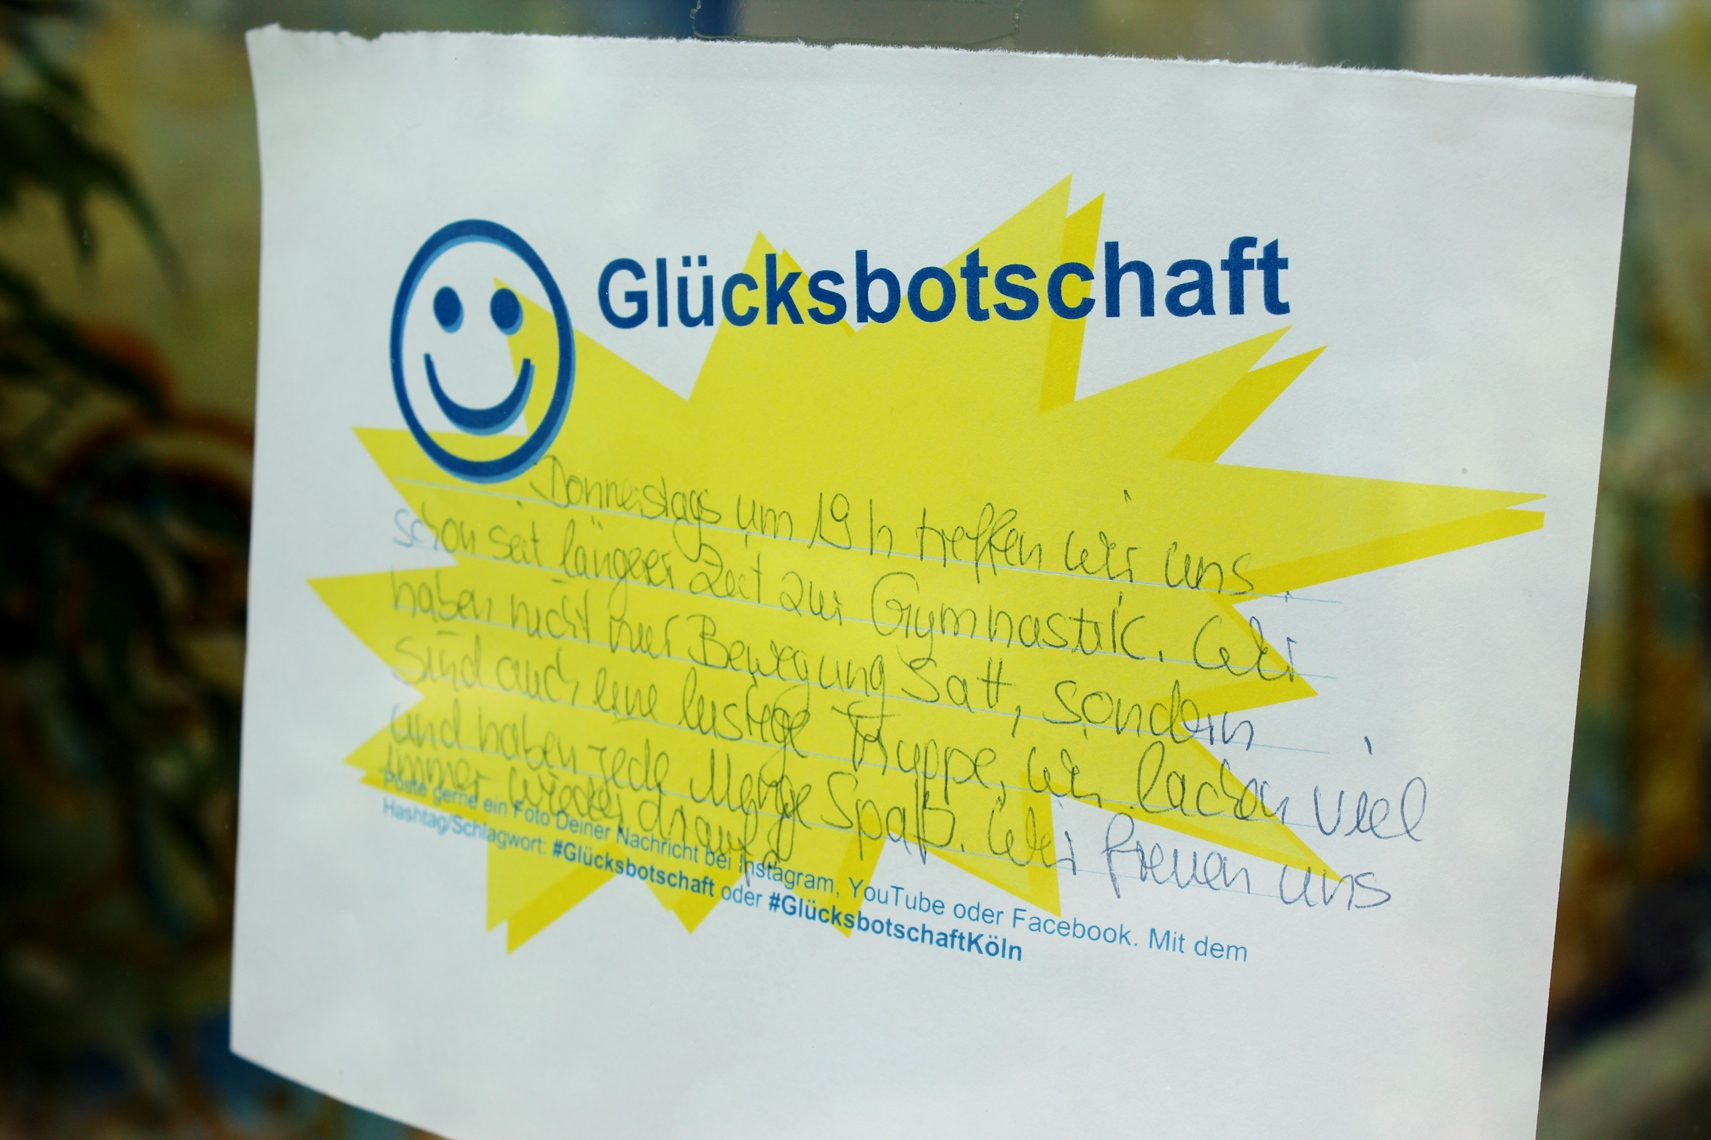 Glücksbotschaft
Donnerstags um 19 h treffen wir uns
schon seit längerer Zeit zur Gymnastik. Wir
haben nicht nur Bewegung satt, sondern
sind auch eine lustige Truppe, wir lachen viel
und haben jede Menge Spaß. Wir freuen uns
immer wieder drauf
Poste gerne ein Foto Deiner Nachricht bei Instagram, YouTube oder Facebook. Mit dem
Hashtag/Schlagwort: #Glücksbotschaft oder #GlücksbotschaftKöln